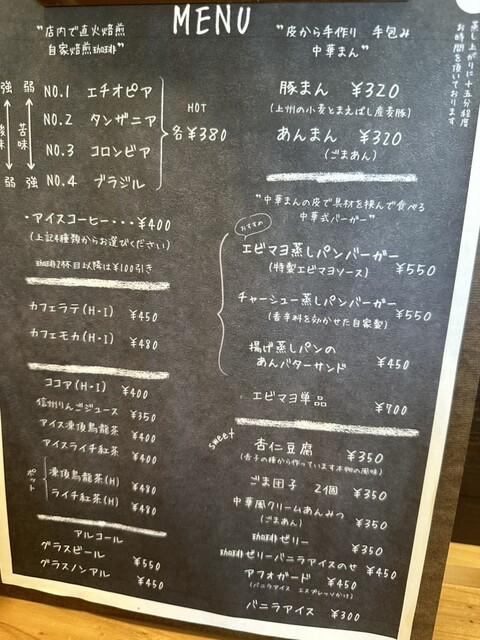 MENU
"店内で直火焙煎
自家焙煎珈琲"
強 弱
酸味 苦味
弱 強
NO.1 エチオピア
NO.2 タンザニア
NO.3 コロンビア
NO.4 ブラジル
HOT
各¥380
・アイスコーヒー・・・¥400
(上記4種類からお選びください)
珈琲2杯目以降は¥100引き
カフェラテ(H・I) ¥450
カフェモカ(H・I) ¥480
ココア(H・I) ¥400
信州りんごジュース ¥350
アイス凍頂烏龍茶 ¥400
アイスライチ紅茶 ¥400
ポット
凍頂烏龍茶(H) ¥480
ライチ紅茶(H) ¥480
アルコール
グラスビール ¥550
グラスノンアル ¥450
"皮から手作り 手包み
中華まん"
豚まん ¥320
(上州の小麦とまえばし産麦豚)
あんまん ¥320
(ごまあん)
"中華まんの皮で具材を挟んで食べる
中華式バーガー"
おすすめ
エビマヨ蒸しパンバーガー ¥550
(特製エビマヨソース)
チャーシュー蒸しパンバーガー ¥550
(香辛料を効かせた自家製)
揚げ蒸しパンの
あんバターサンド ¥450
エビマヨ単品 ¥700
sweet
杏仁豆腐 ¥350
(杏子の種から作っています本物の風味)
ごま団子 2個 ¥350
中華風クリームあんみつ ¥350
(ごまあん)
珈琲ゼリー ¥350
珈琲ゼリーバニラアイスのせ ¥450
アフォガード ¥450
(バニラアイス エスプレッソかけ)
バニラアイス ¥300
蒸し上がりに十五分程度
お時間を頂いております